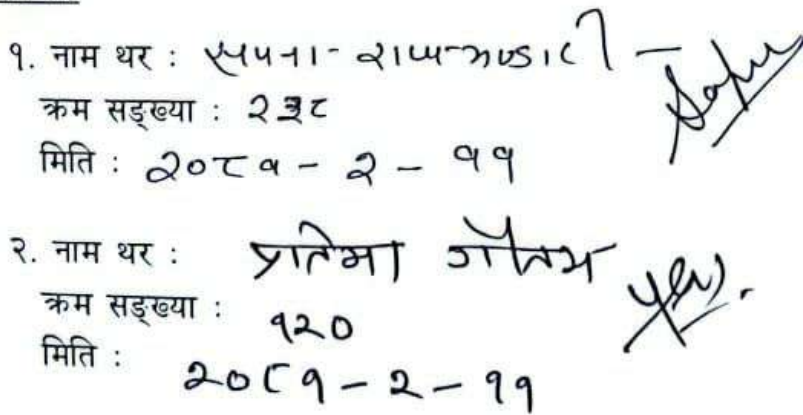 १. नाम थर : सपना राजभण्डारी
क्रम सङ्ख्या : २३८
मिति : २०८१ - २ - ११
२. नाम थर : प्रतिमा गौतम
क्रम सङ्ख्या : १२०
मिति : २०८१ - २ - ११